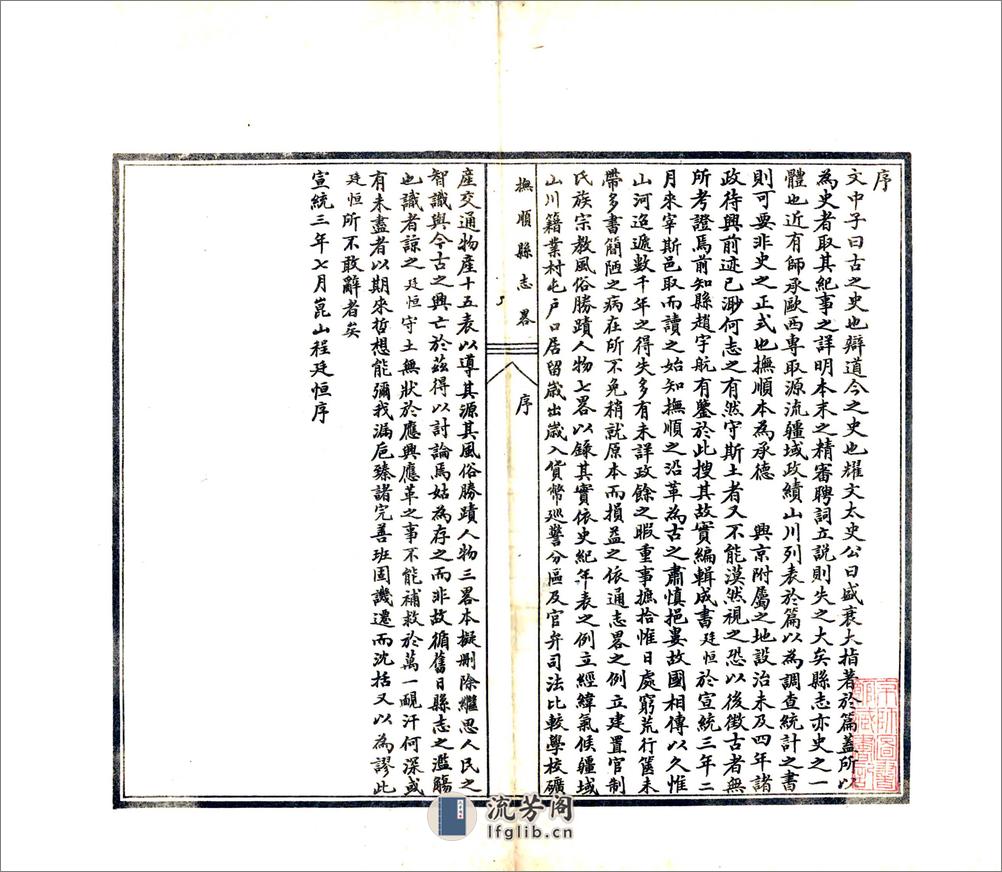 序
文中子曰古之史也辯道今之史也耀文太史公曰盛衰大指著於篇蓋所以
為史者取其紀事之詳明本末之精審聘詞立説則失之大矣縣志亦史之一
體也近有師承歐西專取源流疆域政績山川列表於篇以為調查統計之書
則可要非史之正式也撫順本為承德 興京附屬之地設治未及四年諸
政待興前迹已渺何志之有然守斯土者又不能漠然視之恐以後徵古者無
所考證焉前知縣趙宇航有鑒於此搜其故實編輯成書廷恒於宣統三年二
月來宰斯邑取而讀之始知撫順之沿革為古之肅慎挹婁故國相傳以久惟
山河迢遞數千年之得失多有未詳政餘之暇重事摭拾惟日處窮荒行篋未
帶多書簡陋之病在所不免稍就原本而損益之依通志畧之例立建置官制
氏族宗教風俗勝蹟人物七畧以錄其實依史紀年表之例立經緯氣候疆域
山川籍業村屯户口居留歲出歲入貨幣巡警分區及官弁司法比較學校礦
撫順縣志畧
序
産交通物產十五表以導其源其風俗勝蹟人物三畧本擬刪除繼思人民之
智識與今古之興亡於茲得以討論焉姑為存之而非故循舊日縣志之濫觴
也識者諒之廷恒守土無狀於應興應革之事不能補救於萬一覥汗何深或
有未盡者以期來哲想能彌我漏卮臻諸完善班固譏遷而沈括又以為謬此
廷恒所不敢辭者矣
宣統三年七月崑山程廷恒序
流芳阁
lfglib.cn